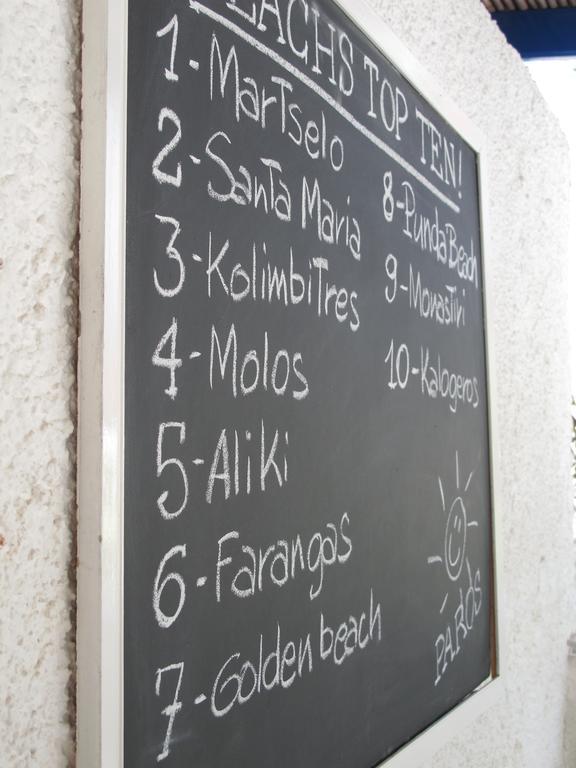 EACHS TOP TEN!
1-Martselo
2-Santa Maria
3-Kolimbitres
4-Molos
5-Aliki
6-Farangas
7-Golden beach
8-Punda Beach
9-Monastiri
10-Kalogeros
PAROS